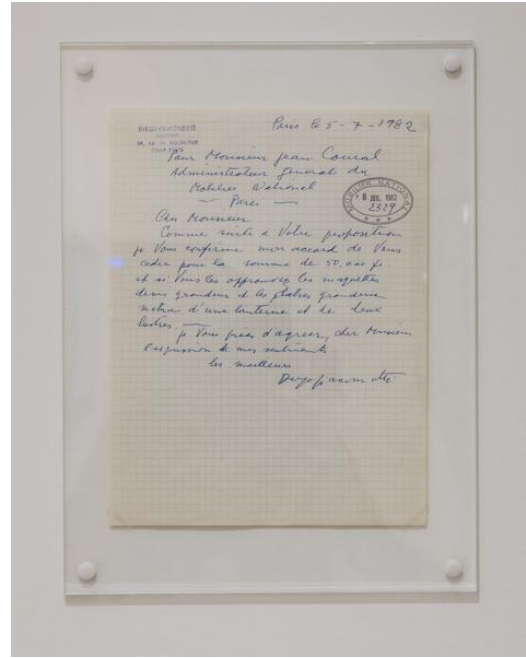 Paris le 5-7-1982
DIEGO GIACOMETTI
PARIS
Pour Monsieur Jean Coural
Administrateur General du
Mobilier National
— Paris —
MOBILIER NATIONAL
8 JUIL 1982
2329
Monsieur
Comme suite à Votre proposition
je Vous confirme mon accord de Vous
céder pour la somme de 50.000 fr.
et si Vous les approuvez les maquettes
demi grandeur et les plâtres grandeur
nature d'une lanterne et de deux
lustres.
je Vous prie d'agreer, cher Monsieur
l'expression de mes sentiments
les meilleurs
Diego Giacometti